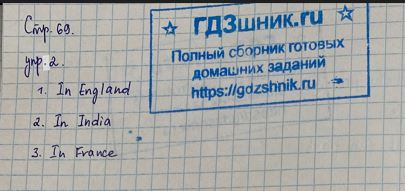 Стр. 69.
упр. 2.
1. In England
2. In India
3. In France
ГДЗшник.ru
Полный сборник готовых
домашних заданий
https://gdzshnik.ru